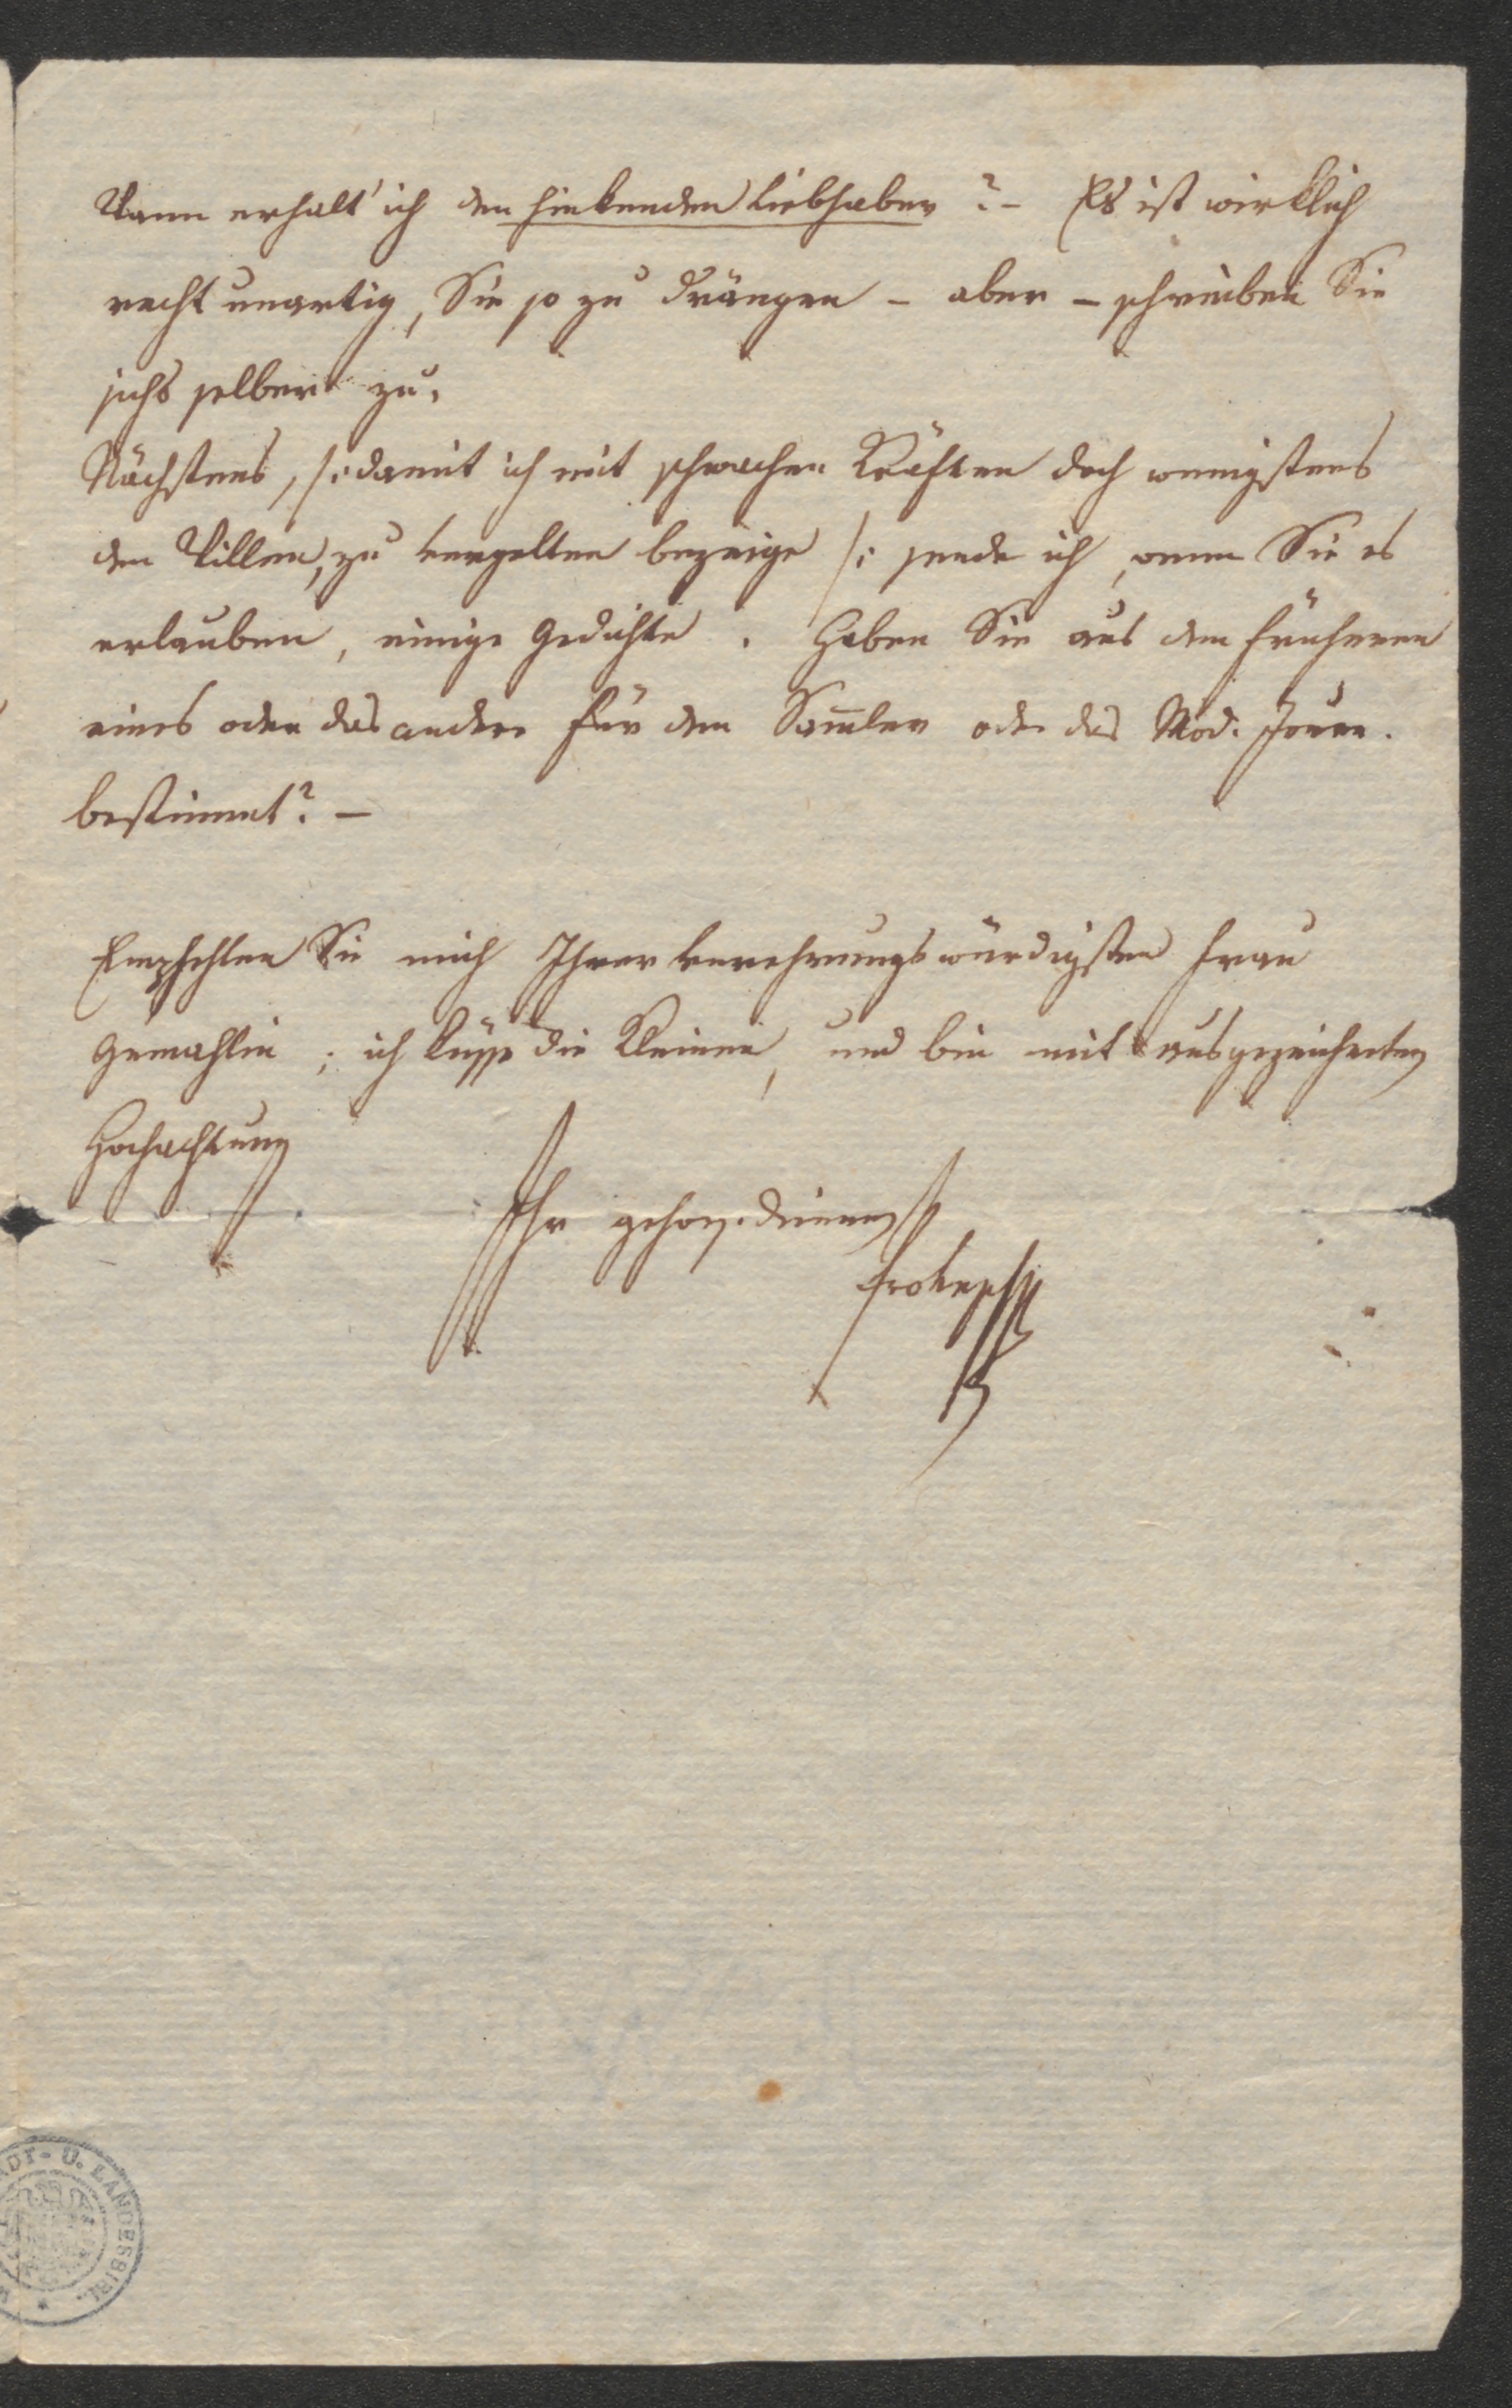 Wann erhalt' ich den hinkenden Liebhaber? – Es ist wirklich
recht unartig, Sie so zu drängen – aber – schreiben Sie
sichs selber zu.
Nächstens, /: damit ich mit schwachen Kräften doch wenigstens
den Willen, zu vergelten bezeige /: sende ich, wenn Sie es
erlauben, einige Gedichte. Haben Sie aus den früheren
eines oder das andere für den Sam̄ler oder das Mod. Journ.
bestimmt? –
Empfehlen Sie mich Ihrer verehrungswürdigsten Frau
Gemahlin; ich küsse die Kleinen, und bin mit ausgezeichneter
Hochachtung
Ihr gehors. Diener
U. LANDESBIBL.